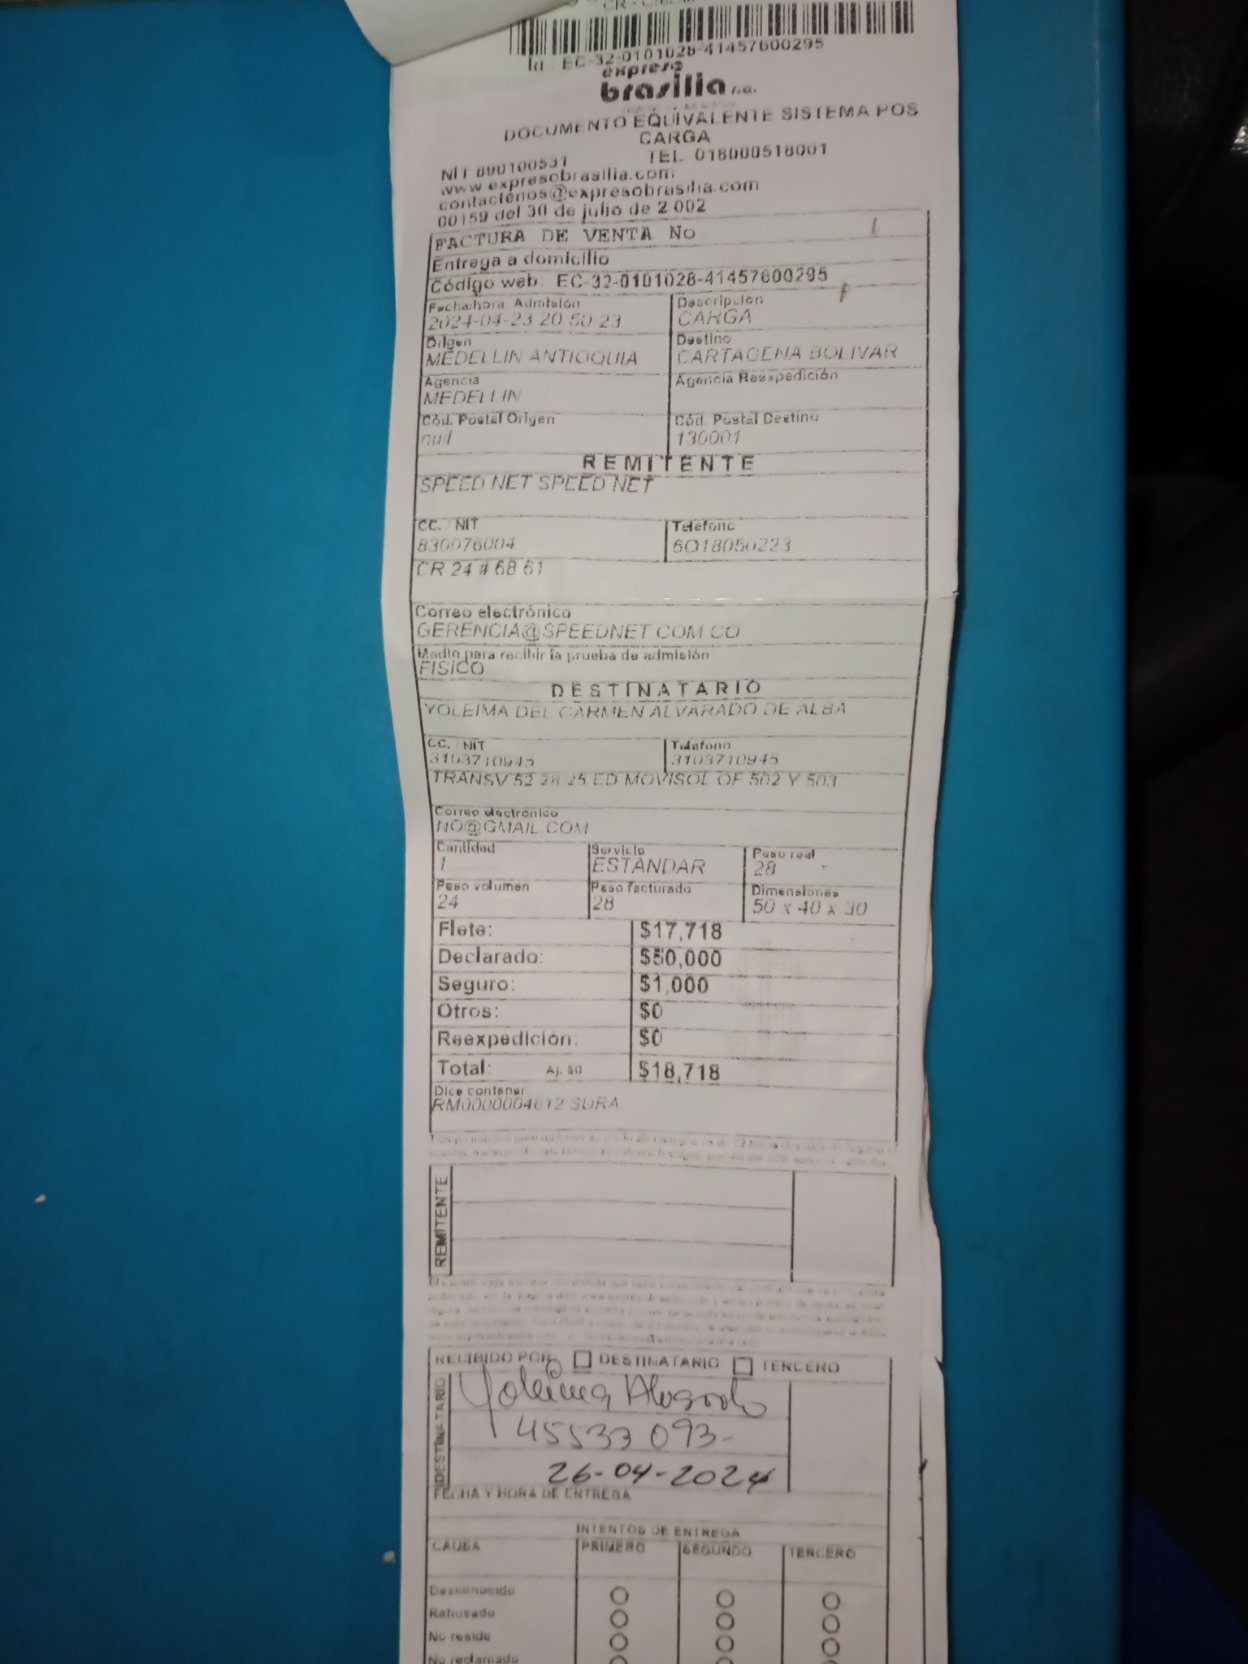 Id : EC-32-0101028-41457600295
expreso
brasilia s.a.
DOCUMENTO EQUIVALENTE SISTEMA POS
CARGA
NIT 890100531 TEL. 018000518001
www.expresobrasilia.com
contactenos@expresobrasilia.com
00159 del 30 de julio de 2.002
FACTURA DE VENTA No
Entrega a domicilio
Código web: EC-32-0101028-41457600295
Fecha/hora Admisión Descripción
2024-04-23 20:50:23 CARGA
Origen Destino
MEDELLIN ANTIOQUIA CARTAGENA BOLIVAR
Agencia Agencia Reexpedición
MEDELLIN
Cód. Postal Origen Cód. Postal Destino
null 130001
REMITENTE
SPEED NET SPEED NET
CC. NIT Teléfono
830076004 6018050223
CR 24 # 68 61
Correo electrónico
GERENCIA@SPEEDNET.COM.CO
Medio para recibir la prueba de admisión
FISICO
DESTINATARIO
YOLEIMA DEL CARMEN ALVARADO DE ALBA
CC. NIT Teléfono
3103710945 3103710945
TRANSV 52 28 25 ED MOVISOL OF 502 Y 503
Correo electrónico
NO@GMAIL.COM
Cantidad Servicio Peso real
1 ESTANDAR 28
Peso volumen Peso facturado Dimensiones
24 28 50 x 40 x 30
Flete: $17,718
Declarado: $50,000
Seguro: $1,000
Otros: $0
Reexpedición: $0
Total: Aj. $0 $18,718
Dice contener
RM0000004612 SURA
REMITENTE
RECIBIDO POR DESTINATARIO TERCERO
DESTINATARIO
Yoleima Alvarado
45533 093-
26-04-2024
FECHA Y HORA DE ENTREGA
INTENTOS DE ENTREGA
CAUSA PRIMERO SEGUNDO TERCERO
Desconocido
Rehusado
No reside
No reclamado